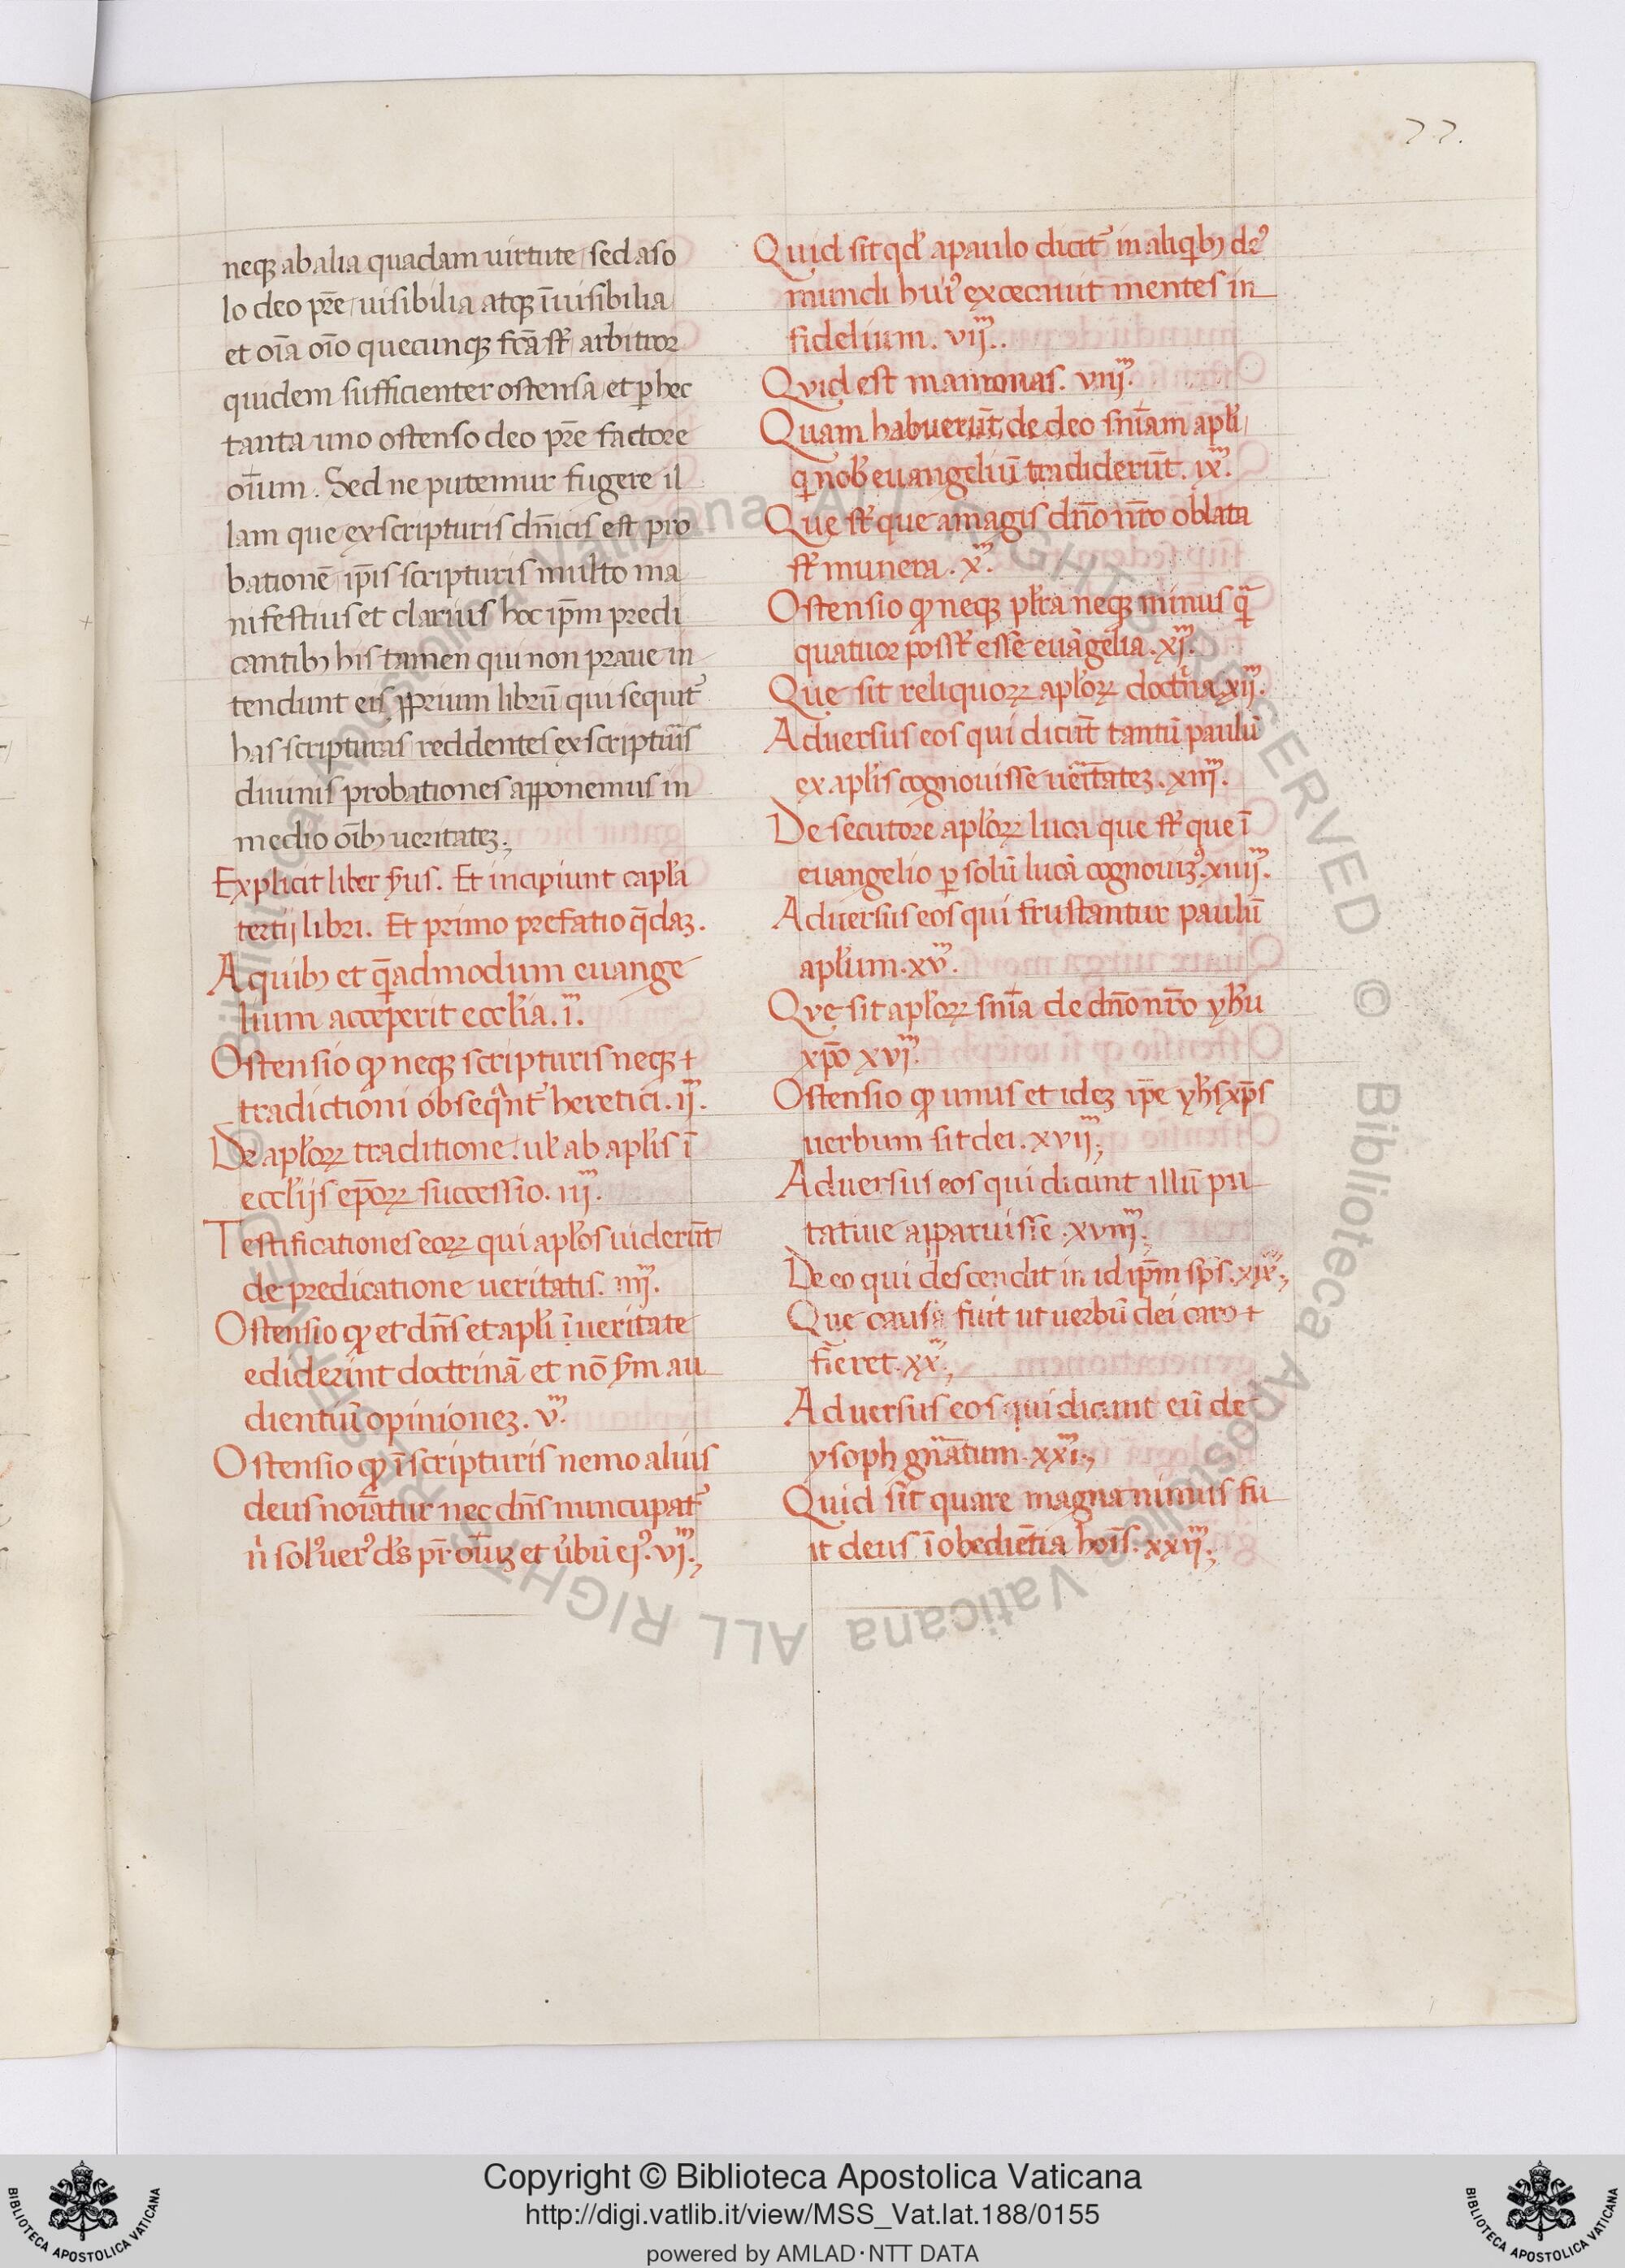 77.
neqꝫ ab alia quadam uirtute sed a so
lo deo pr̄e uisibilia atqꝫ ī uisibilia
et oīa oīo quecunqꝫ fcā st̄ arbitror
quidem sufficienter ostensa et ꝑ hec
tanta uno ostenso deo pr̄e factore
oīum. Sed ne putemur fugere il
lam que ex scripturis dn̄icis est pro
bationē ip̄is scripturis multo ma
nifestius et clarius hoc ip̄m predi
cantibꝫ his tamen qui non praue in
tendunt eis ꝓprium librū qui sequit᷑
has scripturas reddentes ex scripturis
diuinis probationes apponemus in
medio oībꝫ ueritateꝫ.
Explicit liber s̄us. Et incipiunt capl̄a
tertij libri. Et primo prefatio q̄daꝫ.
A quibꝫ et q̄admodum euange
lium acceperit eccl̄ia. i.ᵐ
Ostensio ꝙ neqꝫ scripturis neqꝫ +
tradictioni obseqᵃnt᷑ heretici. ij.ᵐ
De apl̄oꝝ traditione: ul̄ ab apl̄is ī
eccl̄ijs ep̄oꝝ successio. iij.ᵐ
Testificationes eoꝝ qui apl̄os uiderūt
de predicatione ueritatis. iiij.ᵐ
Ostensio ꝙ et dn̄s et apl̄i ī ueritate
ediderint doctrinā et nō s̄m au
dientiū opinioneꝫ. v.ᵐ
Ostensio ꝙ ī scripturis nemo alius
deus noīatur nec dn̄s nuncupat᷑
nⁱ sol᷒ uer᷒ d̄s pr̄ oīuꝫ et ūbū ej᷒. vj.ᵐ
Quid sit qd̄ a paulo dicit᷑ in aliqⁱbꝫ de᷒
mundi hui᷒ excecauit mentes in
fidelium. vij.ᵐ
Quid est mamonas. viij.ᵐ
Quam habuerūt de deo sn̄iam apl̄i
qⁱ nob̄ euangeliū tradiderūt. ix.ᵐ
Que st̄ que a magis dn̄o nr̄o oblata
st̄ munera. x.ᵐ
Ostensio ꝙ neqꝫ pl̄ra neqꝫ minus qᵃ
quatuor poss̄t esse euāgelia. xj.ᵐ
Que sit reliquoꝝ apl̄oꝝ doctⁱna xij.ᵐ
Aduersus eos qui dicūt tantū paulū
ex apl̄is cognouisse ueritateꝫ. xiij.ᵐ
De secutore apl̄oꝝ luca que st̄ que ī
euangelio ꝑ solū lucā cognouim᷒. xiiij.ᵐ
Aduersus eos qui frustantur paulū
apl̄um. xv.ᵐ
Que sit apl̄oꝝ sn̄ia de dn̄o nr̄o yh̄u
xp̄o xvj.ᵐ
Ostensio ꝙ unus et ideꝫ ip̄e yh̄s xp̄s
uerbum sit dei. xvij.ᵐ
Aduersus eos qui dicunt illū pu
tatiue apparuisse. xviij.ᵐ
De eo qui descendit in id ip̄m sp̄s. xix.ᵐ
Que causa fuit ut uerbū dei caro +
fieret. xx.ᵐ
Aduersus eos qui dicunt eū de
ysoph gn̄atum. xxi.ᵐ
Quid sit quare magnanimus fu
it deus ī obediētia hoīs. xxij.ᵐ
© Biblioteca Apostolica Vaticana ALL RIGHTS RESERVED © Biblioteca Apostolica Vaticana ALL RIGHTS RESERVED
Copyright © Biblioteca Apostolica Vaticana
http://digi.vatlib.it/view/MSS_Vat.lat.188/0155
powered by AMLAD·NTT DATA
BIBLIOTECA APOSTOLICA VATICANA
BIBLIOTECA APOSTOLICA VATICANA